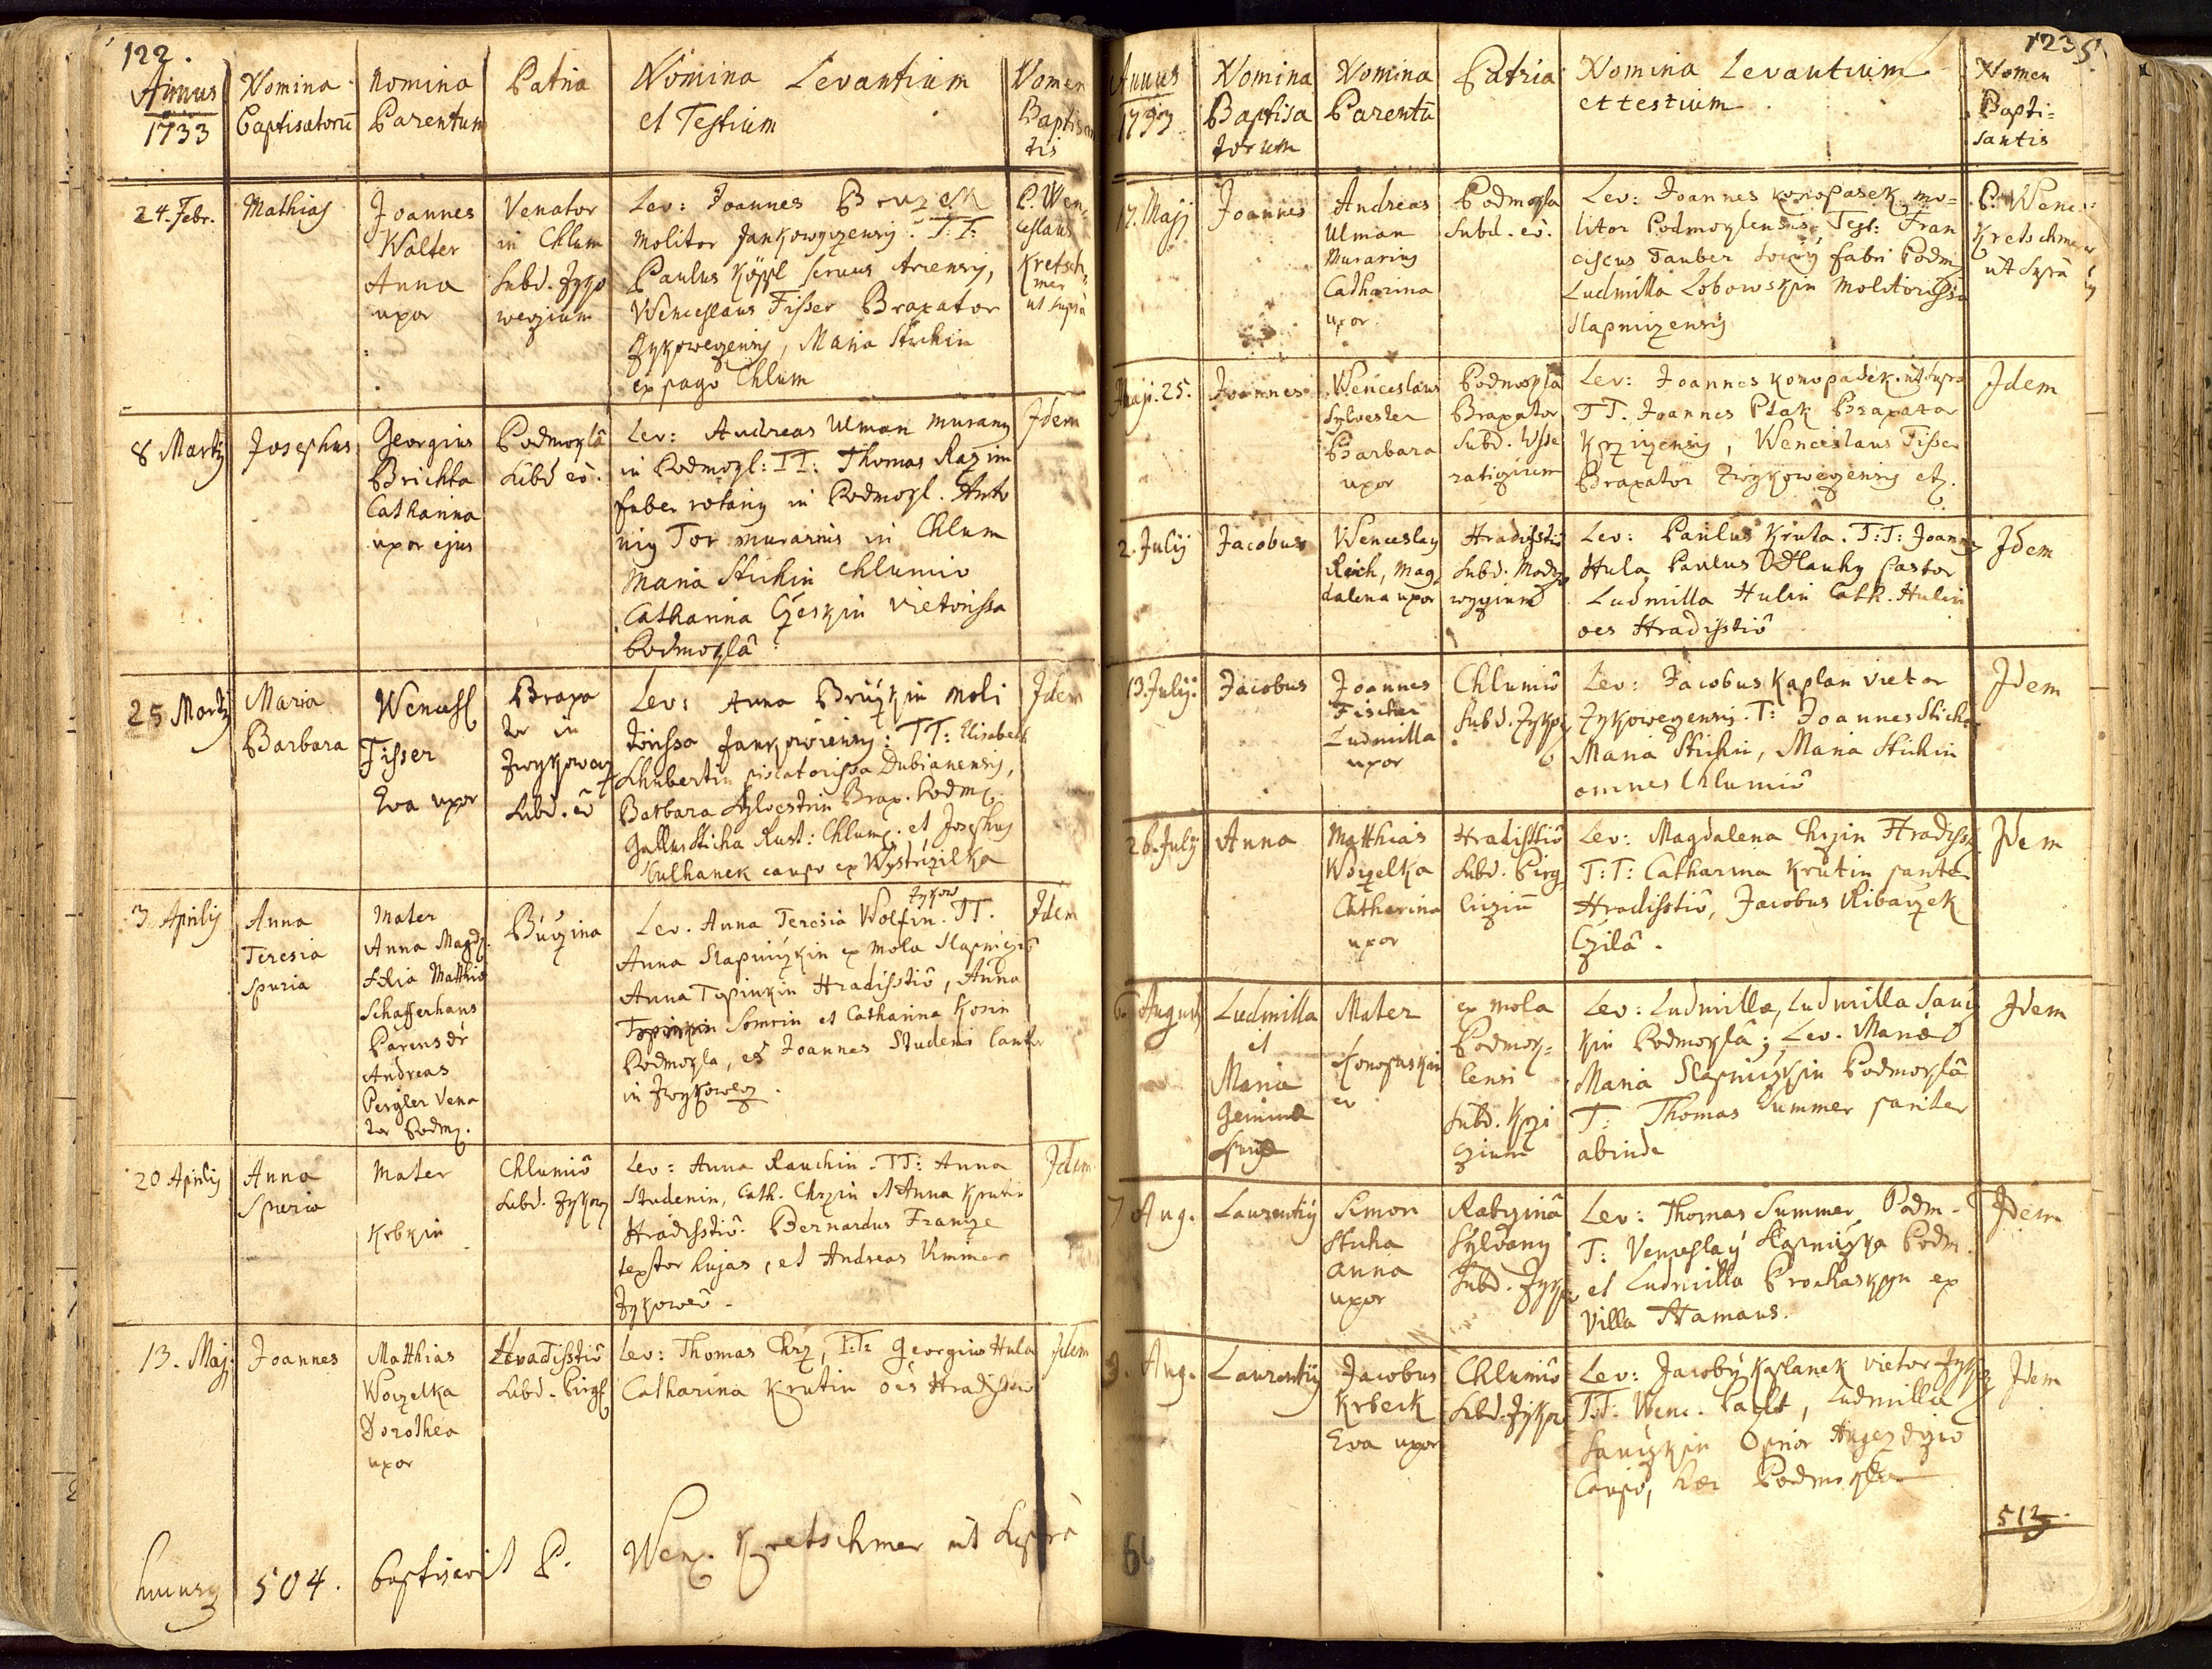 122.
Annus
1733
Nomina
Baptisatorū
Nomina
Parentum
Patria
Nomina Levantium
et Testium
Nomen
Baptisan
tis
24. Febr.
Mathias
Joannes
Walter
Anna
uxor
Venator
in Chlum
Subd. Zyko
weczium
Lev: Joannes
Molitor T:T:
Paulus Köppl servus
Wenceslaus Fisser Braxator
Zykoweczensis, Maria Stichin
ex pago Chlum
P. Wen
ceslaus
Kretsch=
mer
ut supra
8 Martij
Josephus
Georgius
Brichta
Catharina
uxor ejus
Podmoklâ
Subd eô.
Lev: Andreas Ulman murarius
in Podmokl: TT: Thomas Razim
faber rotarius in Podmokl. Anto
nius Tor murarius in Chlum
Maria Stichin Chlumio
Catharina Czeskin vietorissa
Podmoklâ
Idem
25 Martij
Maria
Barbara
Wencesl
Fisser
Eva uxor
Braxa
tor in
Zwykowecz
Subd. eô
Lev: Anna moli
torissa TT: Elisabeth
Schubertin piscatorissa Dubianensis,
Barbara Sylvestrin Brax. Podm.
Gallus Sticha Rust: Chlum. et Josephus
Kulhanek caupo ex Wystrzilka
Idem
3. Aprilis
Anna
Teresia
Spuria
Mater
Anna Magd.
filia Matthiæ
Schafferhans
Parens dr
Andreas
Pergler Vena
tor Podm.
Buczina
Zykow
Lev. Anna Teresia Wolfin. TT.
Anna Slapniczkin ex mola
Anna Topinkin Hradisstiô, Anna
Somrin et Catharina Kosin
Podmokla, et Joannes Studeni Cantor
in Zwykowecz.
Idem
20 Aprilis
Anna
Spuria
Mater
Krbkin
Chlumiô
Subd. Zykow
Lev: Anna Rauchin. TT: Anna
Studenin, Cath. Chrzin et Anna Krutin
Hradisstiô. Bernardus Francze
textor hujas, et Andreas Ummer
Zykoweô.
Idem
13. Maj.
Joannes
Matthias
Woczelka
Dorothea
uxor
Hradisstiô
Subd. Pirgl
Lev: Thomas Chrz, T:T: Georgius Hula
Catharina Krutin oēs Hradisstiô
Idem
504. baptisavit P. Wenc. Kretschmer ut Suprà
1235.
Annus
1733
Nomina
Baptisa
torum
Nomina
Parentū
Patria
Nomina Levantium
et testium
Nomen
Bapti=
santis
17. Maij
Joannes
Andreas
Ulman
Murarius
Catharina
uxor.
Podmokla
Subd. eô.
Lev: Joannes Konopasek mo=
litor Podmoklensis, Test: Fran
ciscus Tauber socius fabri Podm.
Ludmilla Lobowskin Molitorissa
Slapniczensis
P: Wenc:
Kretschmer
ut Supra
Maji. 25.
Joannes
Wenceslaus
Sylvester
Barbara
uxor
Podmokla
Braxator
Subd. Wsse
raticzium
Lev: Joannes Konopasek. ut supra
TT. Joannes Ptak Braxator
Krziczensis, Wenceslaus Fisser
Braxator Zwykoweczensis etc.
Idem
2. Julij
Jacobus
Wenceslaus
Reich, Mag
dalena uxor
Hradisstiô
Subd.
Lev: Paulus Kruta. T:T: Joannes
Hula Paulus Dlauhy Pastor
Ludmilla Hulin Cath. Hulin
oes Hradisstiô
Idem
13. Julij.
Jacobus
Joannes
Fischer
Ludmilla
uxor
Chlumiô
Subd. Zykow
Lev: Jacobus Kaplan vietor
Zykoweczensis. T: Joannes Sticha
Maria Stichin, Maria Stichin
omnes Chlumiô
Idem
26. Julij
Anna
Matthias
Woczelka
Catharina
uxor
Hradisstiô
Subd. Pirg
liczium
Lev: Magdalena Chrzin Hradisst.
T:T: Catharina Krutin
Hradisstiô, Jacobus Ribaczek
Czilâ.
Idem
6. Augusti
Ludmilla
et
Maria
Geminæ
Spuriæ
Mater
ex mola
Podmok=
lensi
Subd. Krzi
czium
Lev: Ludmillæ, Ludmilla
kin Podmoklâ; Lev. Mariæ
Maria Slapniczkin Podmoklâ
T: Thomas Summer pariter
abinde
Idem
7 Aug.
Laurentius
Simon
Sticha
Anna
uxor
Rabzinâ
Sylvanus
Subd. Zyko
Lev: Thomas Summer Podm.
T: Venceslaus Slapniczka Podm.
et Ludmilla Prochaskyn ex
villa Hamaus.
Idem
Aug.
Laurentius
Jacobus
Krbeck
Eva uxor
Chlumiô
Subd. Zyko
Lev: Jacobus Kaplanek vietor
T:T. Wenc. Ludmilla
Prior
Caupo, hæc Podmokla
Idem
512.